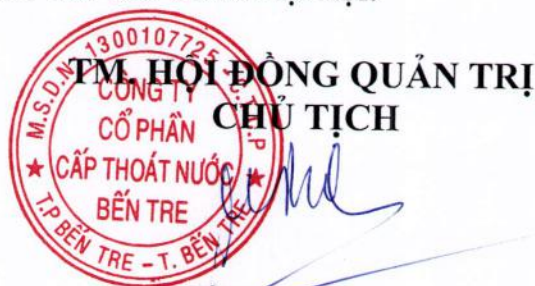 TM. HỘI ĐỒNG QUẢN TRỊ
CHỦ TỊCH
M.S.D.N: 1300107725
CÔNG TY
CỔ PHẦN
CẤP THOÁT NƯỚC
BẾN TRE
T.P BẾN TRE - T. BẾN TRE